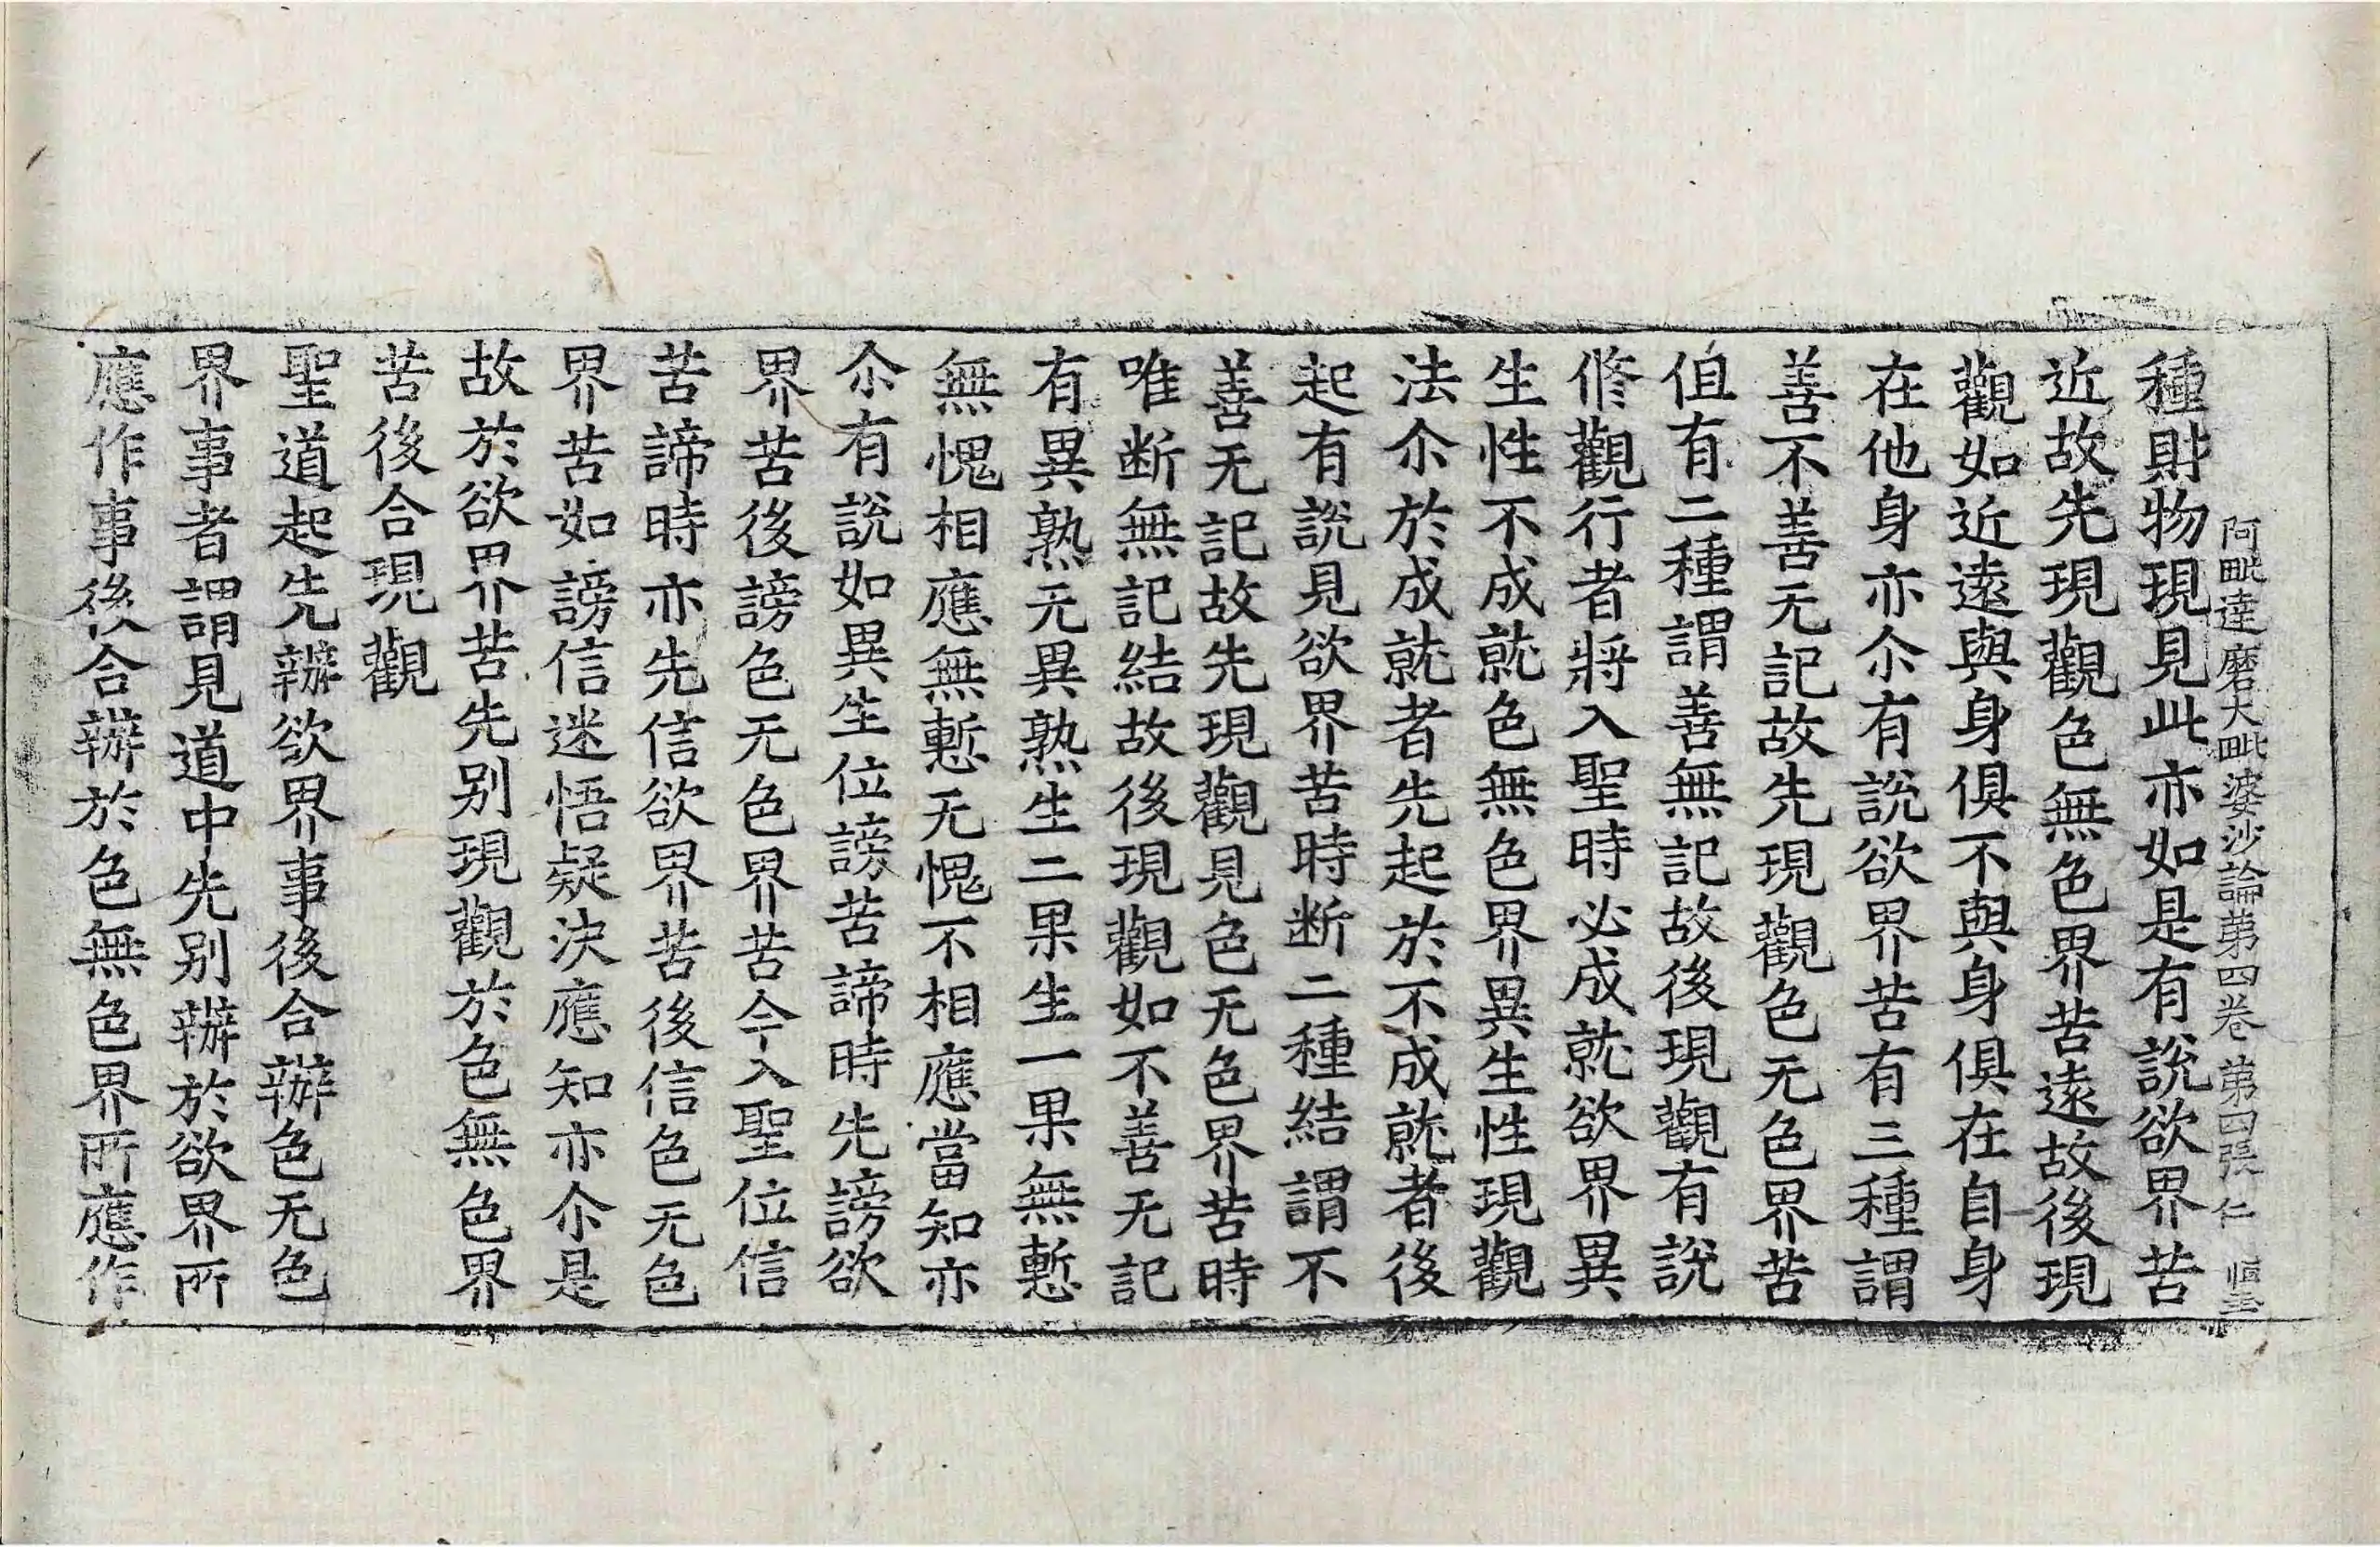 阿毗達磨大毗婆沙論第四卷 第四張 仁
種財物現見此亦如是有說欲界苦
近故先現觀色無色界苦遠故後現
觀如近遠與身俱不與身俱在自身
在他身亦尒有說欲界苦有三種謂
善不善无記故先現觀色无色界苦
伹有二種謂善無記故後現觀有說
修觀行者將入聖時必成就欲界異
生性不成就色無色界異生性現觀
法尒於成就者先起於不成就者後
起有說見欲界苦時断二種結謂不
善无記故先現觀見色无色界苦時
唯断無記結故後現觀如不善无記
有異熟无異熟生二果生一果無慙
無愧相應無慙无愧不相應當知亦
尒有說如異生位謗苦諦時先謗欲
界苦後謗色无色界苦今入聖位信
苦諦時亦先信欲界苦後信色无色
界苦如謗信迷悟疑決應知亦尒是
故於欲界苦先別現觀於色無色界
苦後合現觀
聖道起先辦欲界事後合辦色无色
界事者謂見道中先別辦於欲界所
應作事後合辦於色無色界所應作